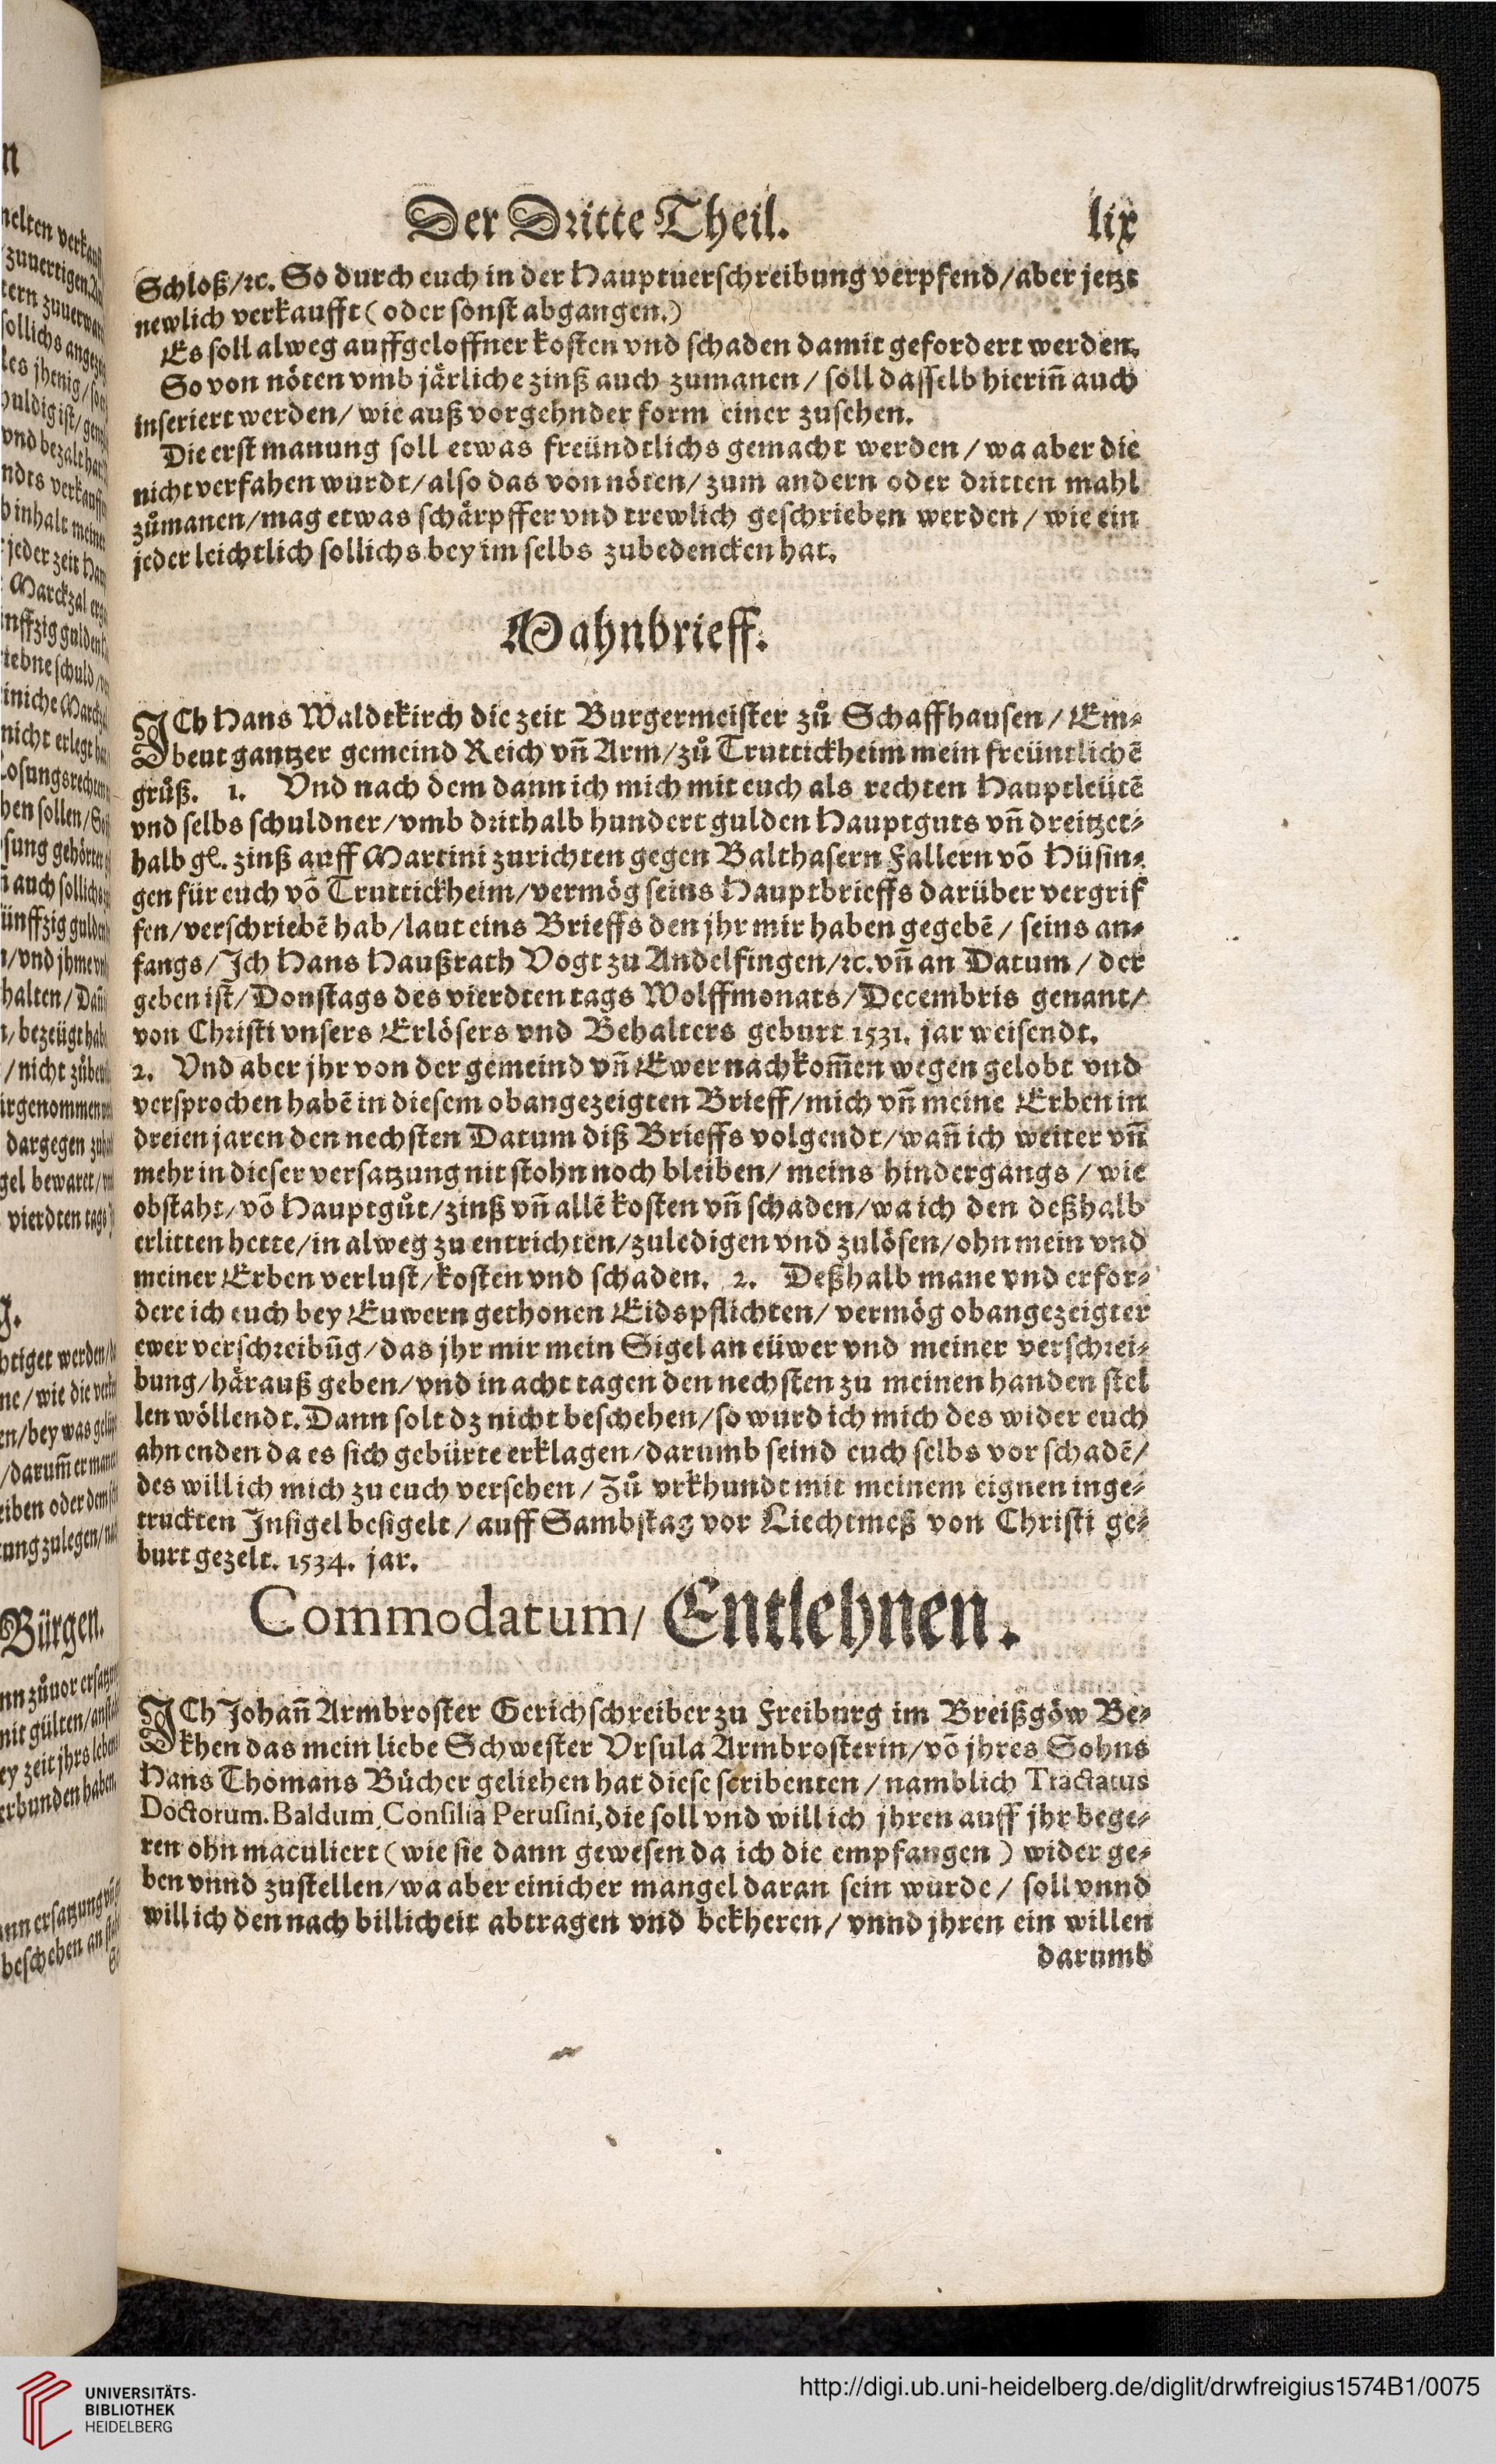 Der Dritte Theil.
lix
Schloß/ꝛc. So durch euch in der Hauptuerschreibung verpfend/aber jetzt
newlich verkaufft (oder sonst abgangen.)
Es soll alweg auffgeloffner kosten vnd schaden damit gefordert werden.
So von nöten vmb järliche zinß auch zumanen/ soll dasselb hierin̄ auch
inseriert werden/ wie auß vorgehnder form einer zusehen.
Die erst manung soll etwas freündtlichs gemacht werden/ wa aber die
nicht verfahen wurdt/also das von nöten/ zum andern oder dritten mahl
zůmanen/mag etwas schärpffer vnd trewlich geschrieben werden/ wie ein
jeder leichtlich sollichs bey im selbs zubedencken hat.
Mahnbrieff.
ICh Hans Waldtkirch die zeit Burgermeister zů Schaffhausen/ Em⸗
beut gantzer gemeind Reich vn̄ Arm/zů Truttickheim mein freüntlichē
grůß. 1. Vnd nach dem dann ich mich mit euch als rechten Hauptleütē
vnd selbs schuldner/vmb drithalb hundert gulden Hauptguts vn̄ dreitzet⸗
halb gl. zinß auff Martini zurichten gegen Balthasern Fallern vō Hüsin⸗
gen für euch vō Truttickheim/vermög seins Hauptbrieffs darüber vergrif
fen/verschriebē hab/laut eins Brieffs den jhr mir haben gegebē/ seins an⸗
fangs/Ich Hans Haußrath Vogt zu Andelfingen/ꝛc.vn̄ an Datum/ der
geben ist/Donstags des vierdten tags Wolffmonats/Decembris genant/
von Christi vnsers Erlösers vnd Behalters geburt 1531. jar weisendt.
2. Vnd aber jhr von der gemeind vn̄ Ewer nachkom̄en wegen gelobt vnd
versprochen habē in diesem obangezeigten Brieff/mich vn̄ meine Erben in
dreien jaren den nechsten Datum diß Brieffs volgendt/wan̄ ich weiter vn̄
mehr in dieser versatzung nit stohn noch bleiben/ meins hindergangs/ wie
obstaht/vō Hauptgůt/zinß vn̄ allē kosten vn̄ schaden/wa ich den deßhalb
erlitten hette/in alweg zu entrichten/zuledigen vnd zulösen/ohn mein vnd
meiner Erben verlust/kosten vnd schaden. 2. Deßhalb mane vnd erfor⸗
dere ich euch bey Euwern gethonen Eidspflichten/ vermög obangezeigter
ewer verschreibūg/das jhr mir mein Sigel an eüwer vnd meiner verschrei⸗
bung/härauß geben/vnd in acht tagen den nechsten zu meinen handen stel
len wöllendt. Dann solt dz nicht beschehen/so wurd ich mich des wider euch
ahn enden da es sich gebürte erklagen/darumb seind euch selbs vor schadē/
des will ich mich zu euch versehen/ Zů vrkhundt mit meinem eignen inge⸗
truckten Insigel besigelt/ auff Sambstag vor Liechtmeß von Christi ge⸗
burt gezelt. 1534. jar.
Commodatum/ Entlehnen.
ICh Johan̄ Armbroster Gerichschreiber zu Freiburg im Breißgöw Be⸗
khen das mein liebe Schwester Vrsula Armbrosterin/vō jhres Sohns
Hans Thomans Bücher geliehen hat diese scribenten/namblich Tractatus
Doctorum. Baldum, Consilia Perusini, die soll vnd will ich jhren auff jhr bege⸗
ren ohn maculiert (wie sie dann gewesen da ich die empfangen) wider ge⸗
ben vnnd zustellen/wa aber einicher mangel daran sein würde/ soll vnnd
will ich den nach billicheit abtragen vnd bekheren/ vnnd jhren ein willen
darumb
UNIVERSITÄTS-
BIBLIOTHEK
HEIDELBERG
http://digi.ub.uni-heidelberg.de/diglit/drwfreigius1574B1/0075